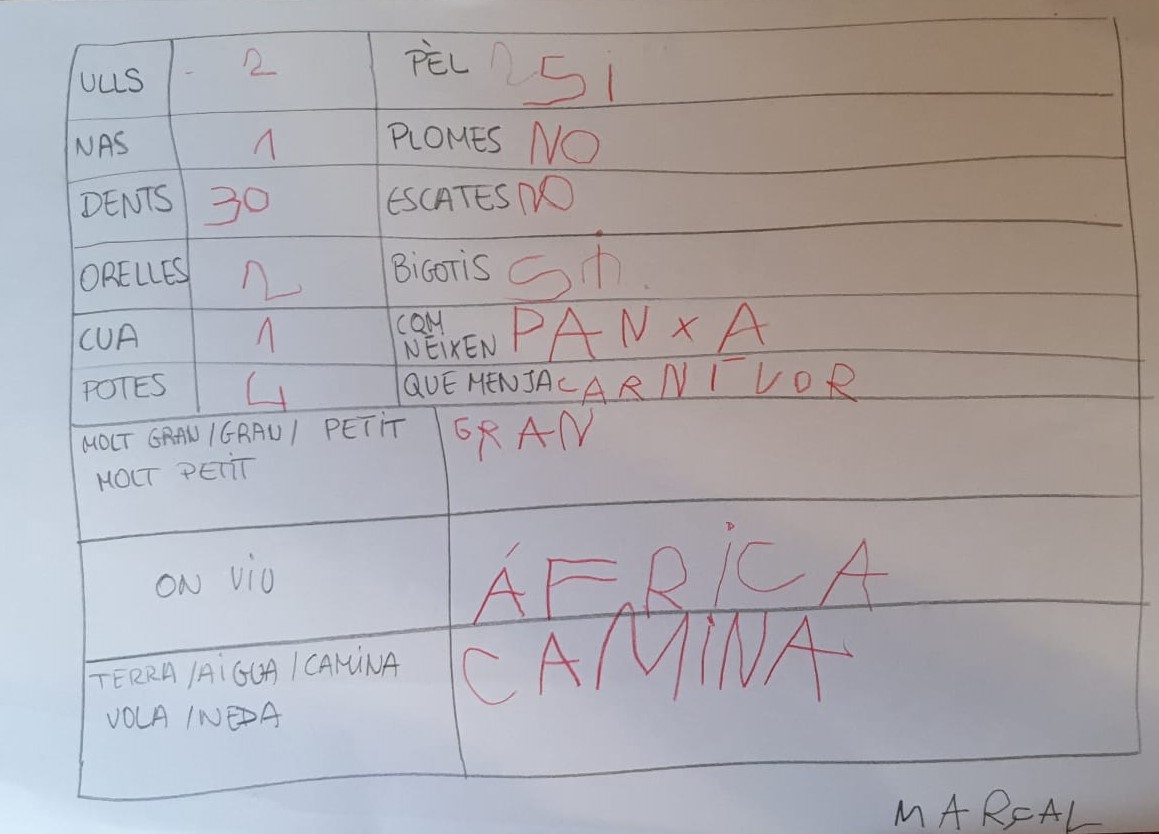 ULLS 2 PÈL SI
NAS 1 PLOMES NO
DENTS 30 ESCATES NO
ORELLES 2 BIGOTIS SÍ
CUA 1 COM NEIXEN PANXA
POTES 4 QUE MENJA CARNÍVOR
MOLT GRAN / GRAN / PETIT GRAN
MOLT PETIT
ON VIU ÁFRICA
TERRA / AIGUA / CAMINA CAMINA
VOLA / NEDA
MARÇAL